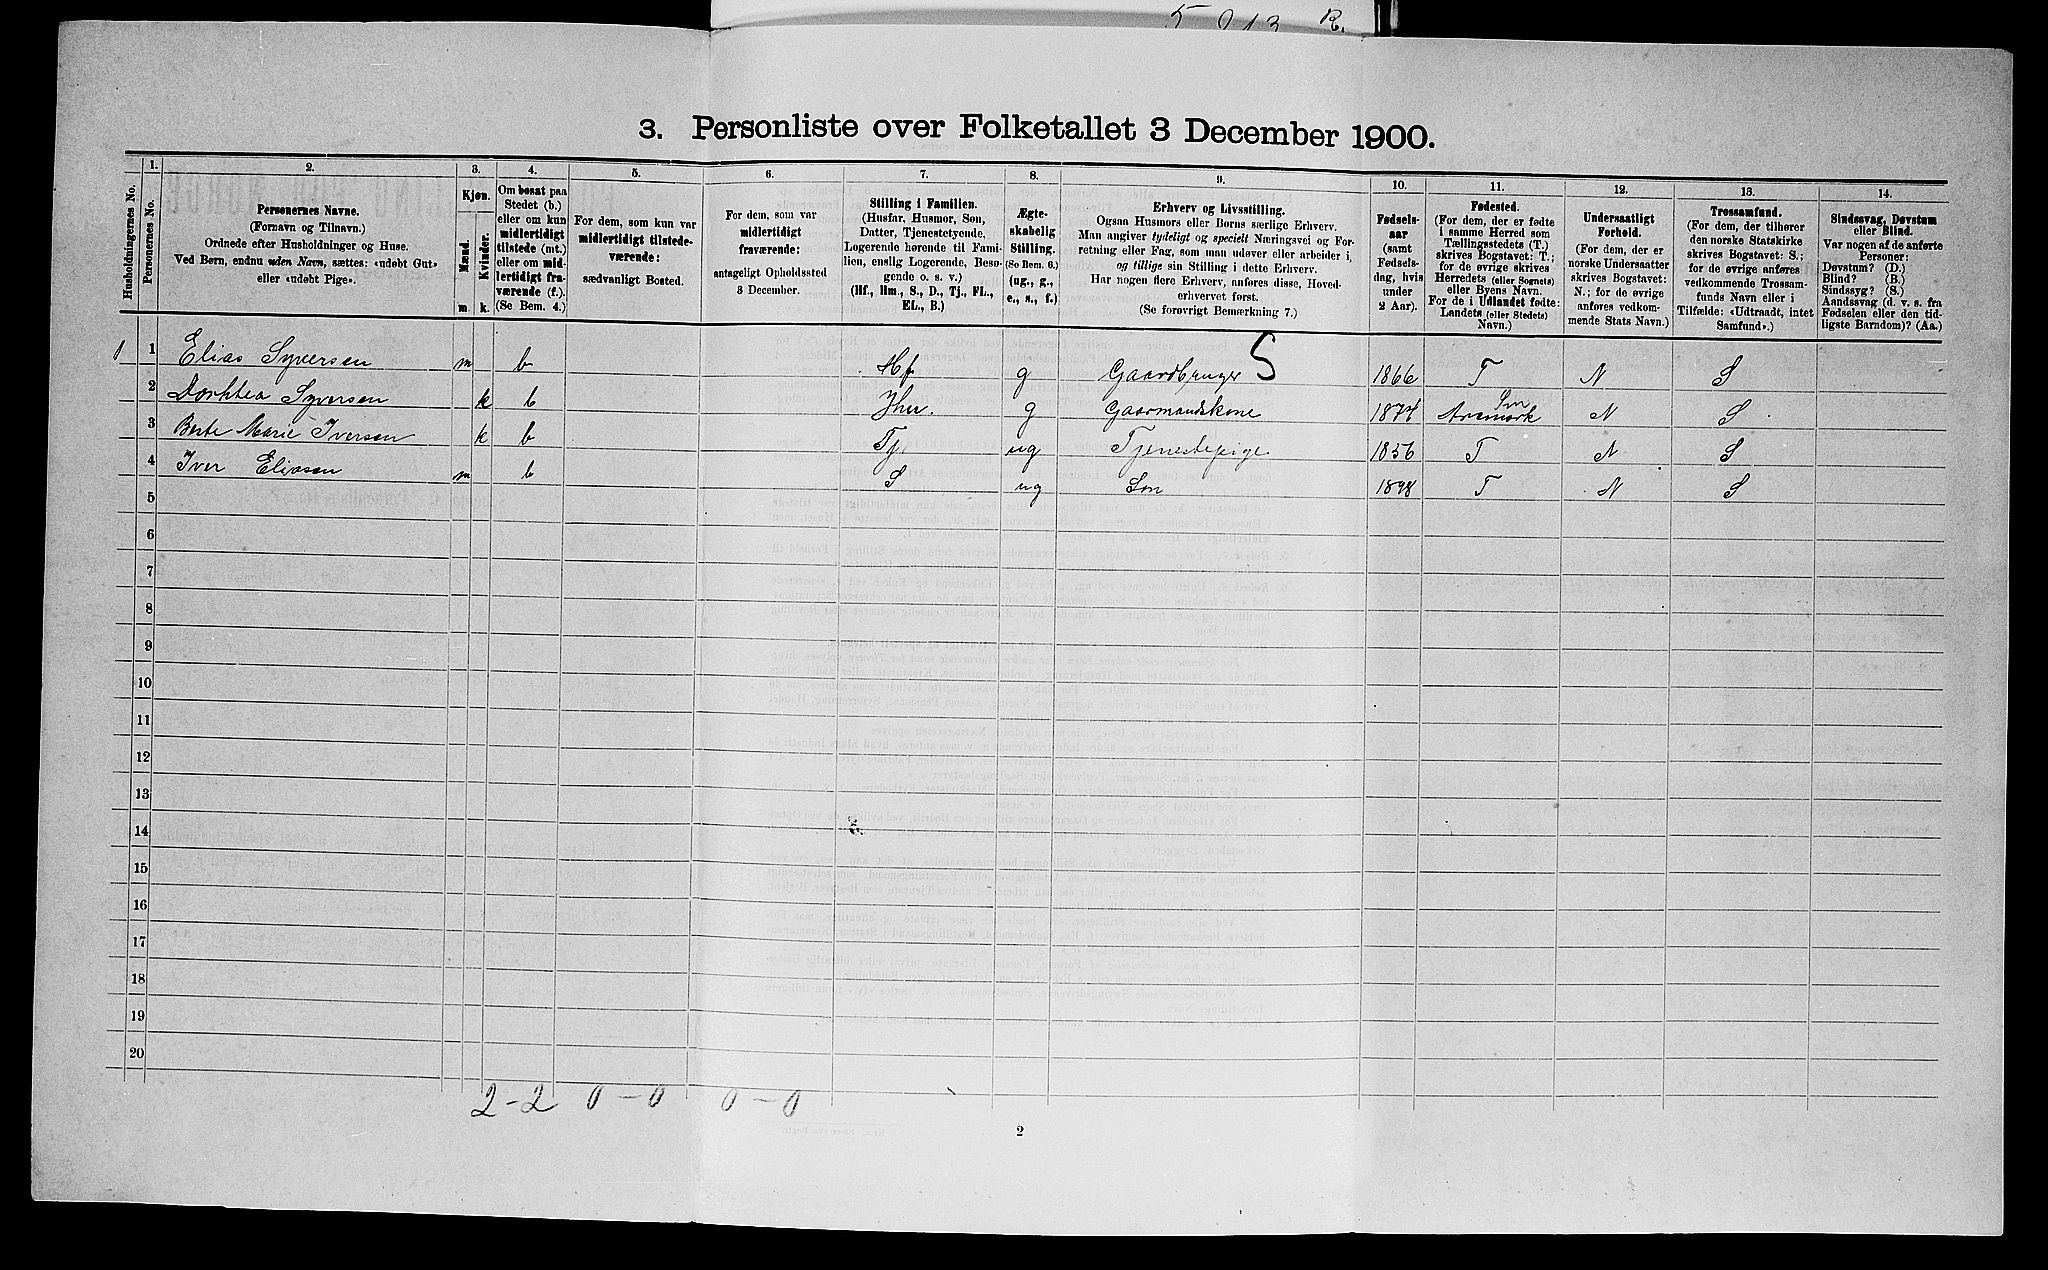 5 013 R.
3. Personliste over Folketallet 3 December 1900.
Husholdningernes No.
1.
Personernes No.
2.
Personernes Navne.
(Fornavn og Tilnavn.)
Ordnede efter Husholdninger og Huse.
Ved Børn, endnu uden Navn, sættes: «udøbt Gut»
eller «udøbt Pige».
3.
Kjøn.
Mænd.
Kvinder.
m. k.
4.
Om bosat paa
Stedet (b.)
eller om kun
midlertidigt
tilstede (mt.)
eller om mid-
lertidigt fra-
værende (f.).
(Se Bem. 4.)
5.
For dem, som kun var
midlertidigt tilstede-
værende:
sædvanligt Bosted.
6.
For dem, som var
midlertidigt
fraværende:
antageligt Opholdssted
3 December.
7.
Stilling i Familien.
(Husfar, Husmor, Søn,
Datter, Tjenestetyende,
Logerende hørende til Fami-
lien, enslig Logerende, Besø-
gende o. s. v.)
(Hf., Hm., S., D., Tj., FL.,
EL., B.)
8.
Ægte-
skabelig
Stilling.
(Se Bem. 6.)
(ug., g.,
e., s., f.)
9.
Erhverv og Livsstilling.
Ogsaa Husmors eller Børns særlige Erhverv.
Man angiver tydeligt og specielt Næringsvei og For-
retning eller Fag, som man udøver eller arbeider i,
og tillige sin Stilling i dette Erhverv.
Har nogen flere Erhverv, anføres disse, Hoved-
erhvervet først.
(Se forøvrigt Bemærkning 7.)
10.
Fødsels-
aar
(samt
Fødsels-
dag, hvis
under
2 Aar).
11.
Fødested.
(For dem, der er fødte
i samme Herred som
Tællingsstedets (T.)
skrives Bogstavet: T.;
for de øvrige skrives
Herredets (eller Sognets)
eller Byens Navn.
For de i Udlandet fødte:
Landets (eller Stedets)
Navn.)
12.
Undersaatligt
Forhold.
(For dem, der er
norske Undersaatter
skrives Bogstavet:
N.; for de øvrige
anføres vedkom-
mende Stats Navn.)
13.
Trossamfund.
(For dem, der tilhører
den norske Statskirke
skrives Bogstavet: S.;
for de øvrige anføres
vedkommende Trossam-
funds Navn eller i
Tilfælde: «Udtraadt, intet
Samfund».)
14.
Sindssvag, Døvstum
eller Blind.
Var nogen af de anførte
Personer:
Døvstum? (D.)
Blind? (B.)
Sindssyg? (S.)
Aandssvag (d. v. s. fra
Fødselen eller den tid-
ligste Barndom)? (Aa.)
1 1 Elias Syversen m b Hf g Gaardbruger S 1866 T N S
2 Dorhtea Syversen k b Hm. g Gaarmandskone 1874 Aremark N S
3 Berte Marie Iversen k b Tj. ug Tjenestepige 1856 T N S
4 Iver Eliasen m b S ug Søn 1898 T N S
5
6
7
8
9
10
11
12
13
14
15
16
17
18
19
20
2-2 0-0 0-0
2